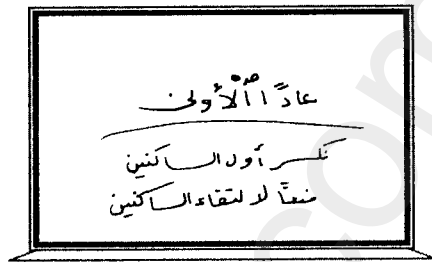 عادًا ٱلْأولى
نكسر أول الساكنين
منعًا لالتقاء الساكنين